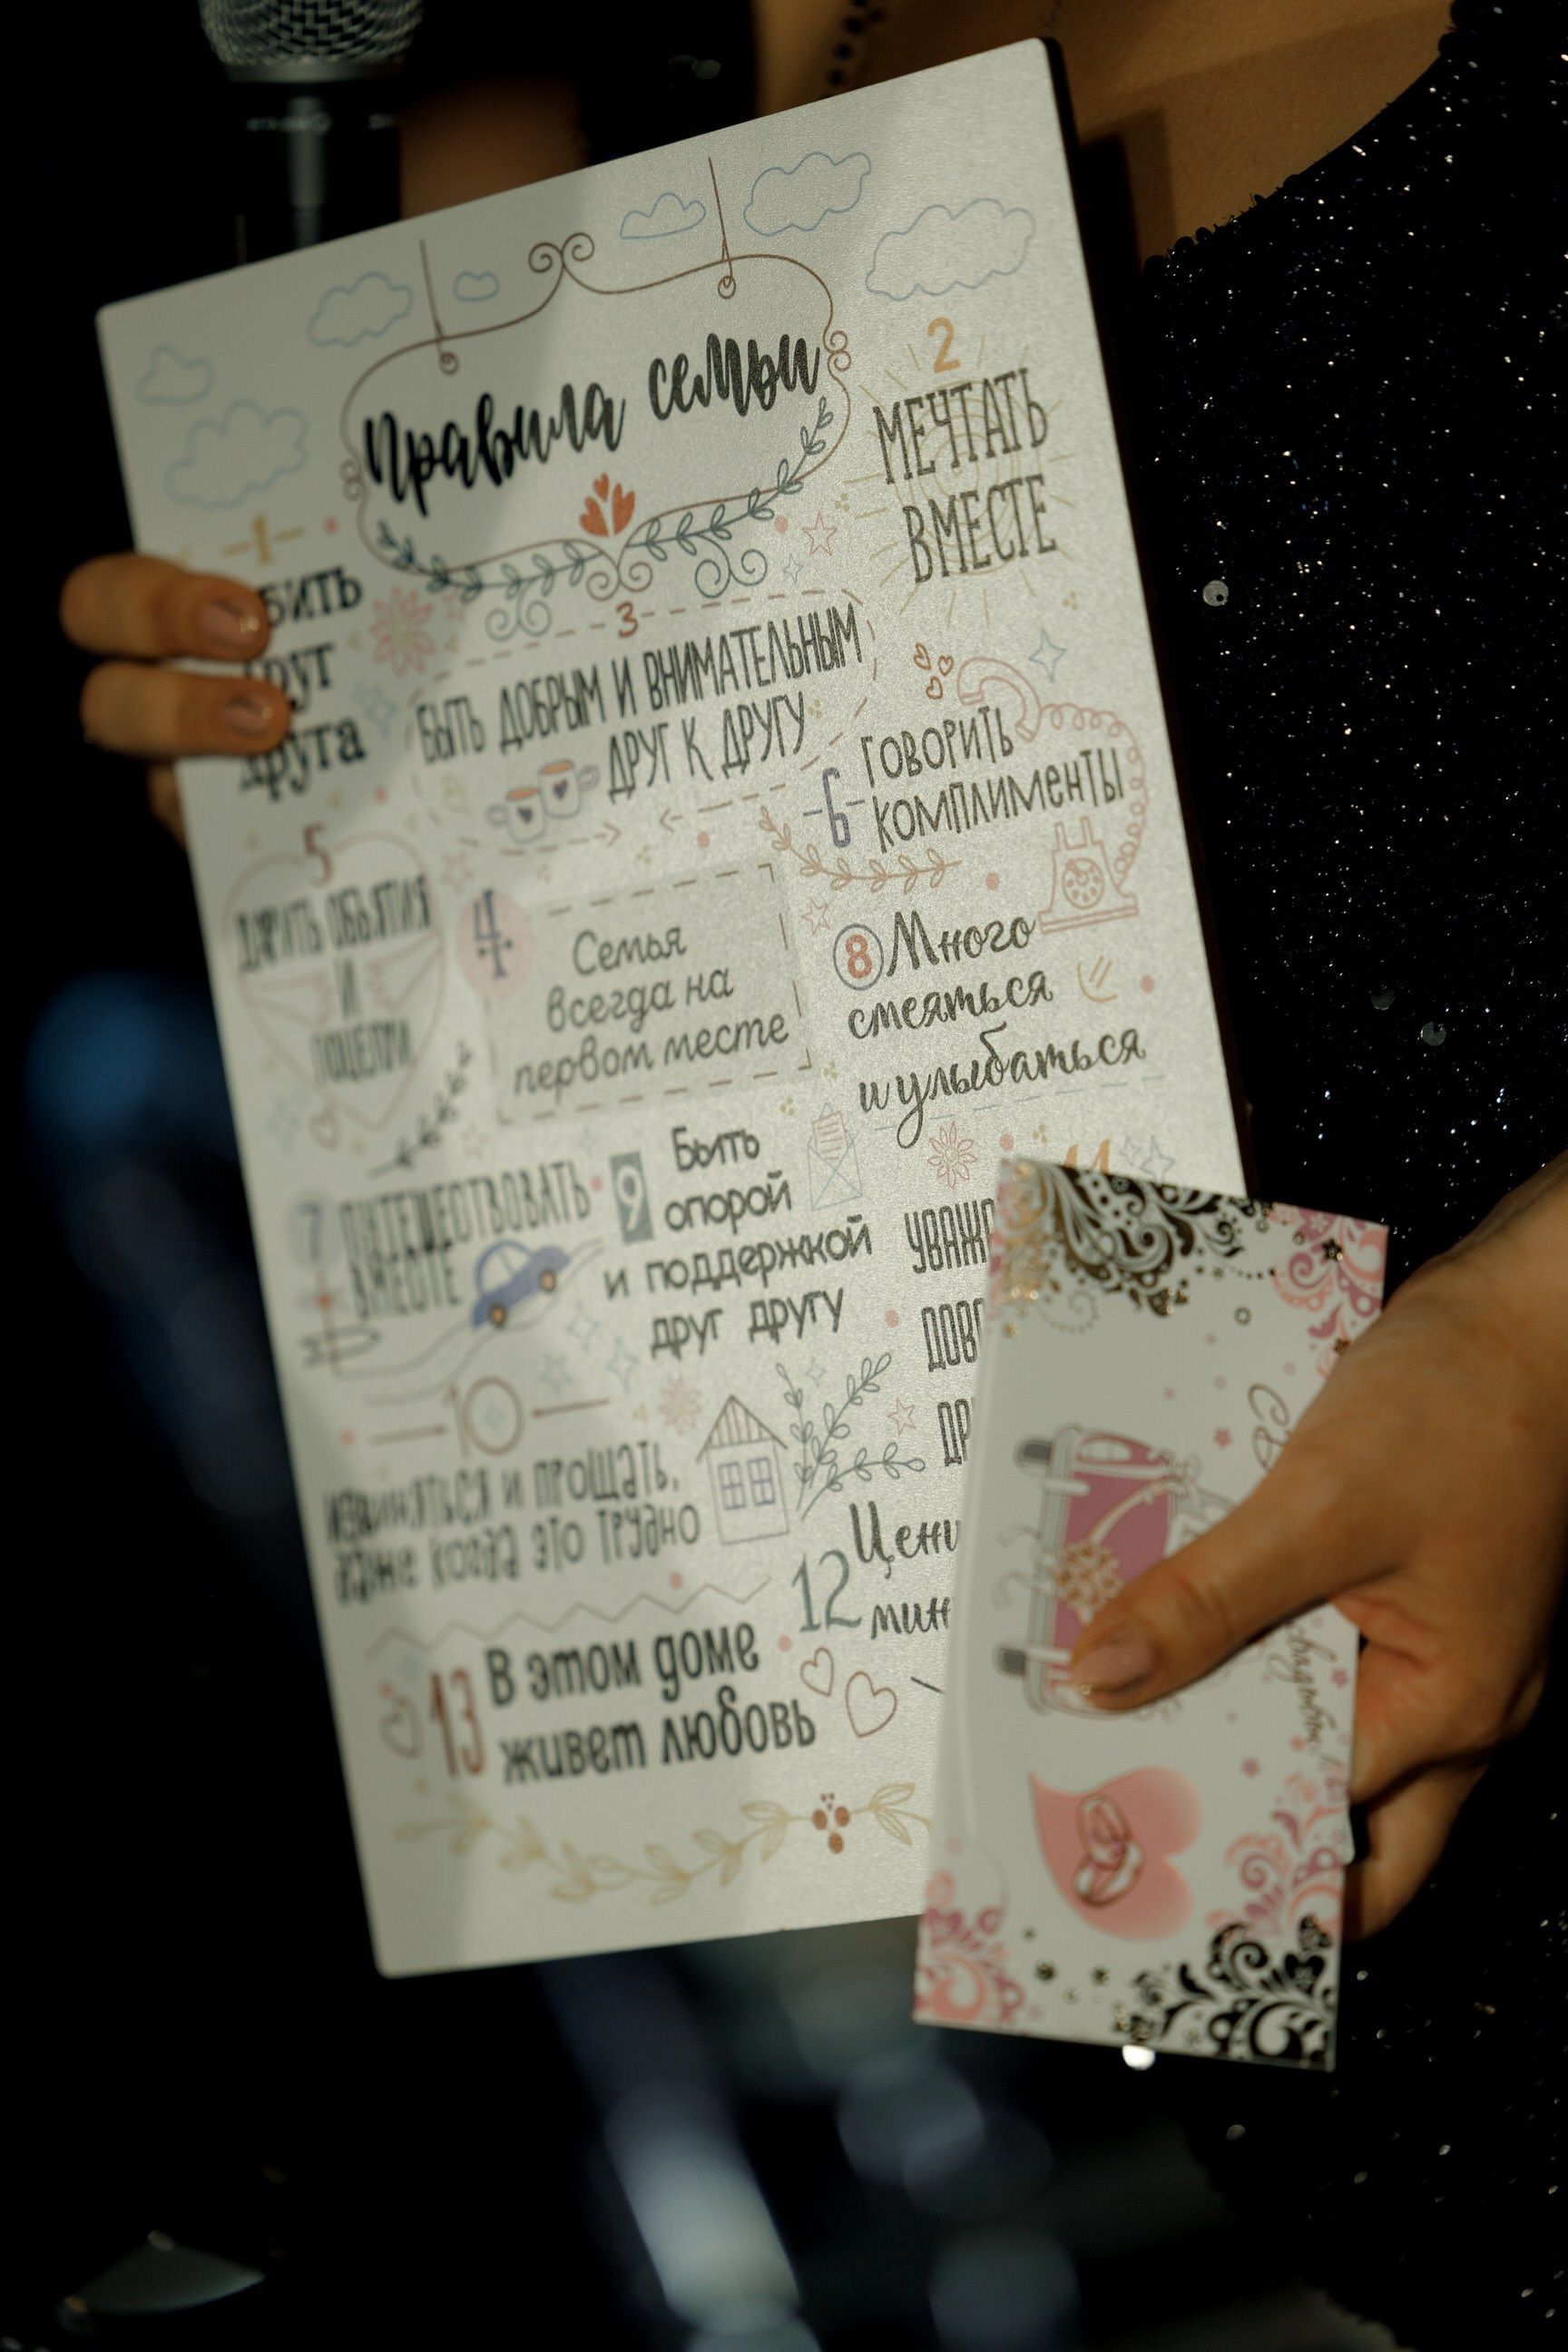 Правила семьи
1
бить
друг
друга
2
МЕЧТАТЬ
ВМЕСТЕ
3
БЫТЬ ДОБРЫМ И ВНИМАТЕЛЬНЫМ
ДРУГ К ДРУГУ
4
Семья
всегда на
первом месте
5
ДАРИТЬ ОБЪЯТИЯ
И
ПОЦЕЛУИ
6
ГОВОРИТЬ
КОМПЛИМЕНТЫ
7
ПУТЕШЕСТВОВАТЬ
ВМЕСТЕ
8 Много
смеяться
и улыбаться
9
Быть
опорой
и поддержкой
друг другу
10
ИЗВИНЯТЬСЯ И ПРОЩАТЬ,
даже когда это трудно
11
УВАЖ
ДОВ
ДР
12
Цени
мин
13
В этом доме
живет любовь